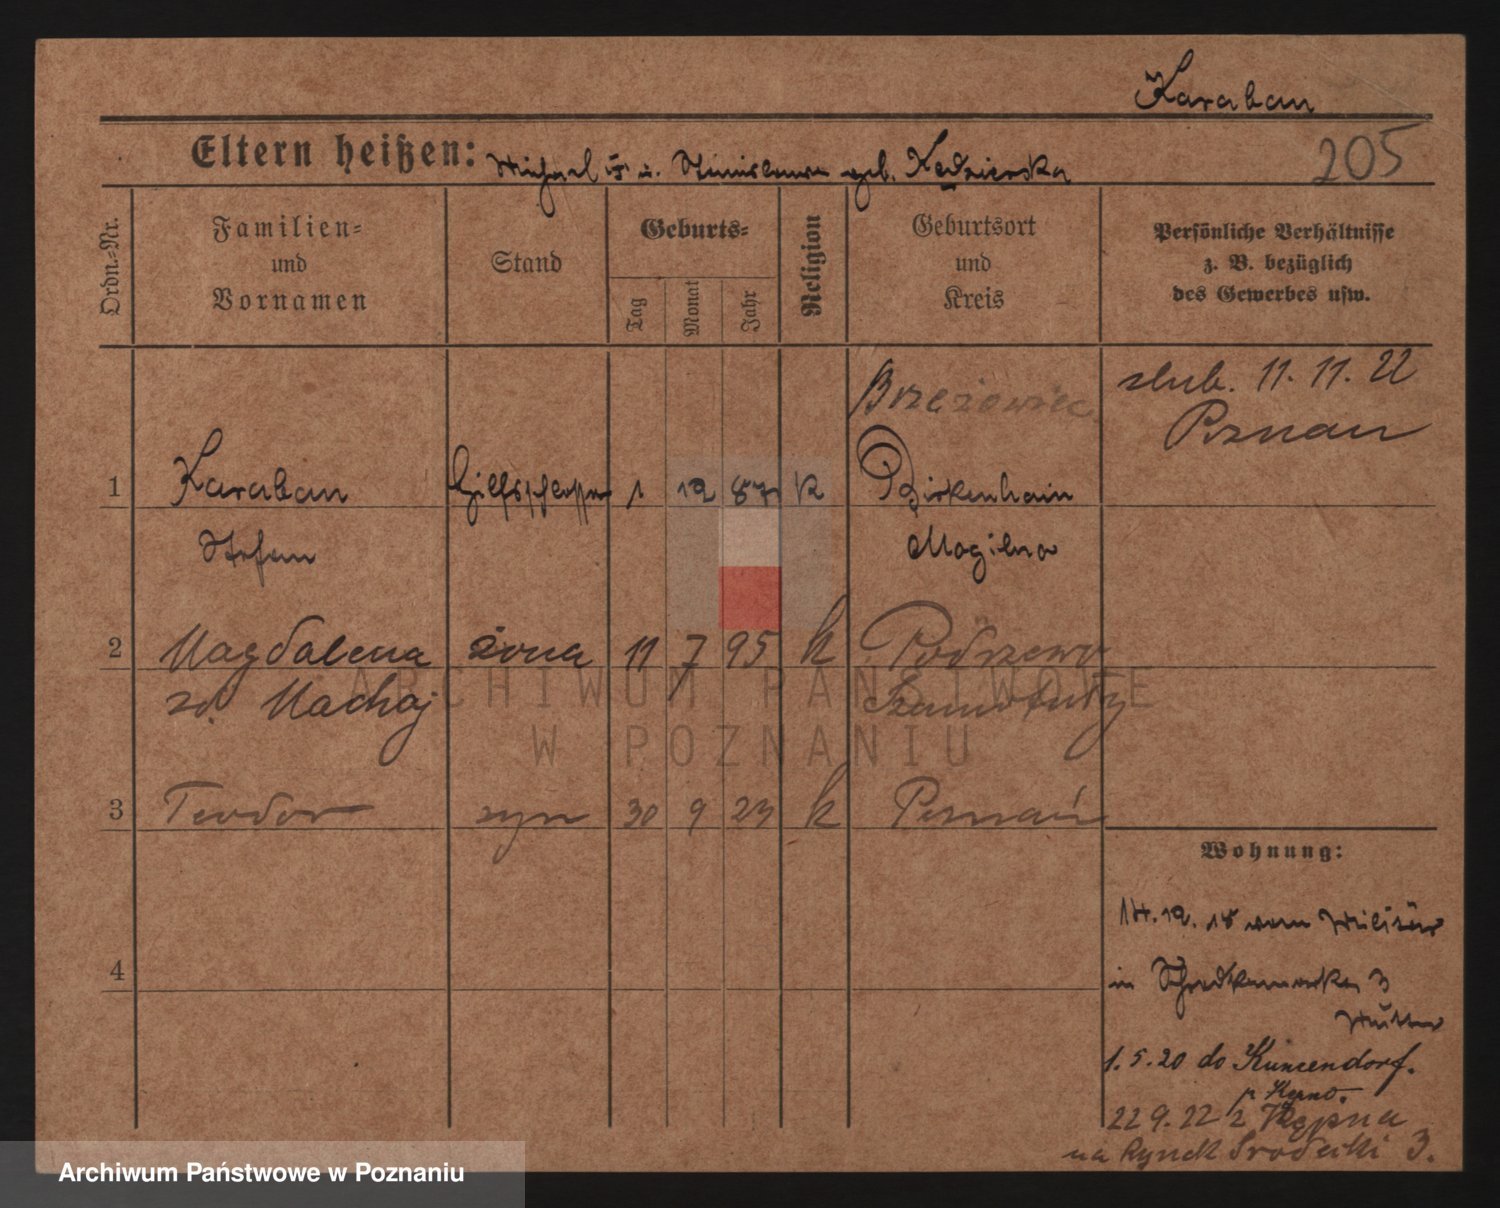 Karaban
205
Eltern heißen: Michael K. u. Stanislawa geb. Kędzierska
Ordn.-Nr.
Familien-
und
Vornamen
Stand
Geburts-
Tag
Monat
Jahr
Religion
Geburtsort
und
Kreis
Persönliche Verhältnisse
z. B. bezüglich
des Gewerbes usw.
Brzezowiec
ślub. 11. 11. 22
Poznań
1 Karaban Hilfsschlosser 1 12 87 k Birkenhain
Stefan Mogilno
2 Magdalena żona 11 7 95 k Podrzewo
zd. Machaj Szamotuły
3 Teodor syn 30 9 23 k Poznań
4
Wohnung:
14. 12. 18 vom Militär
in Schrodkamarkt 3
Mutter
1. 5. 20 do Kunzendorf.
p. Kępno.
22 9. 22 z Kępna
na Rynek Śródecki 3.
ARCHIWUM PAŃSTWOWE
W POZNANIU
Archiwum Państwowe w Poznaniu